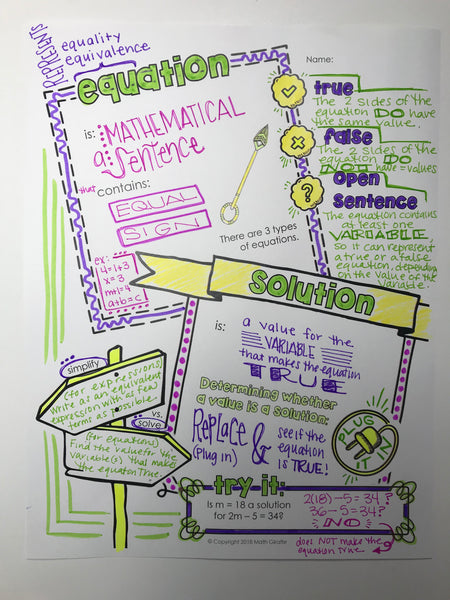 REPRESENTS
equality
equivalence
equation
Name:
is: a MATHEMATICAL
Sentence
that contains:
EQUAL
SIGN
ex:
4=1+3
x=3
m+1=4
a+b=c
There are 3 types
of equations.
true
The 2 sides of the
equation DO have
the same value.
false
The 2 sides of the
equation DO
NOT have = values
open
sentence
The equation contains
at least one
VARIABLE
so it can represent
a true or a false
equation, depending
on the value of the
variable.
solution
is: a value for the
VARIABLE
that makes the equation
TRUE
Determining whether
a value is a solution:
Replace
(Plug in)
&
see if the
equation
is TRUE!
PLUG
IT IN
simplify
(for expressions)
Write as an equivalent
expression with as few
terms as possible
vs.
solve
(for equations)
Find the value for the
variable(s) that makes
the equation True.
try it:
Is m = 18 a solution
for 2m – 5 = 34?
2(18)-5=34?
36-5=34?
NO
does NOT make the
equation True.
© Copyright 2018 Math Giraffe